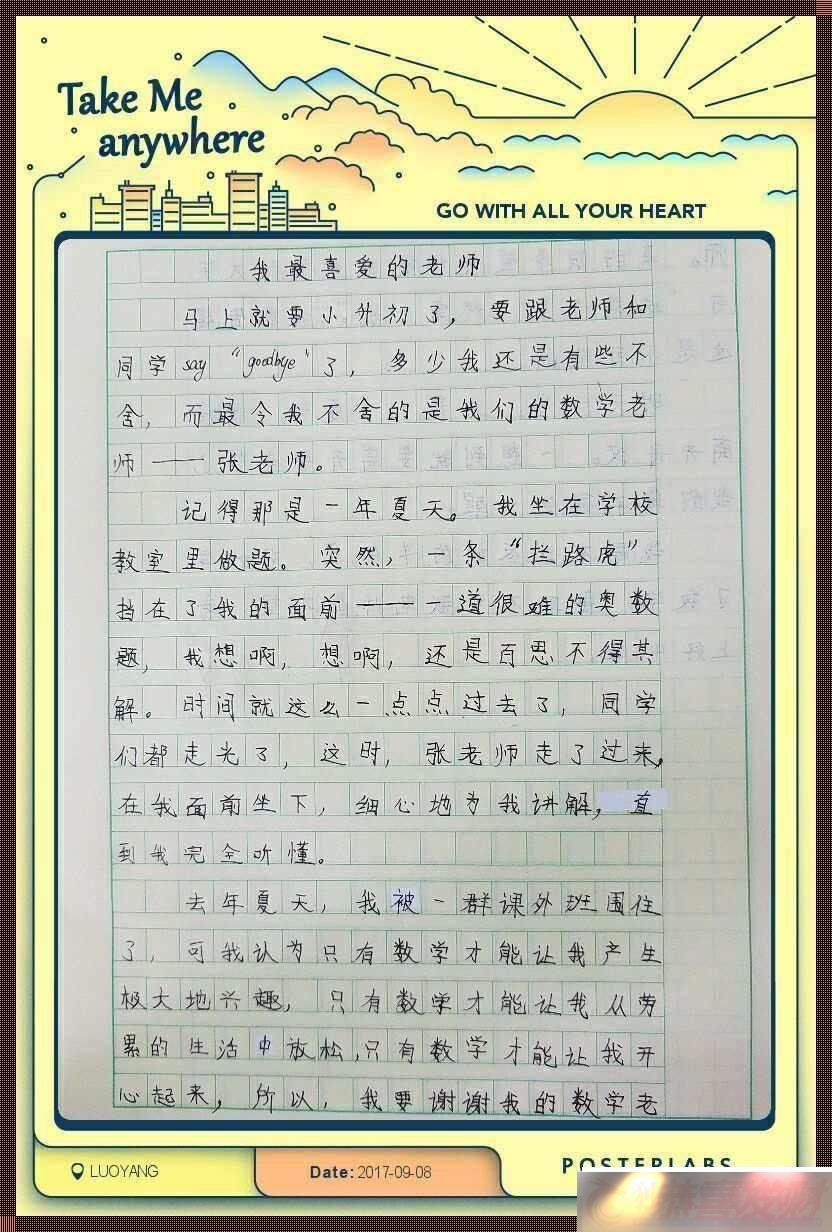 Take Me
anywhere
GO WITH ALL YOUR HEART
我最喜爱的老师
马上就要小升初了，要跟老师和
同学say“goodbye”了，多少我还是有些不
舍，而最令我不舍的是我们的数学老
师——张老师。
记得那是一年夏天。我坐在学校
教室里做题。突然，一条“拦路虎”
挡在了我的面前——一道很难的奥数
题，我想啊，想啊，还是百思不得其
解。时间就这么一点点过去了，同学
们都走光了，这时，张老师走了过来，
在我面前坐下，细心地为我讲解，直
到我完全听懂。
去年夏天，我被一群课外班围住
了，可我认为只有数学才能让我产生
极大地兴趣，只有数学才能让我从劳
累的生活中放松，只有数学才能让我开
心起来，所以，我要谢谢我的数学老
LUOYANG
Date: 2017-09-08
POSTERLABS